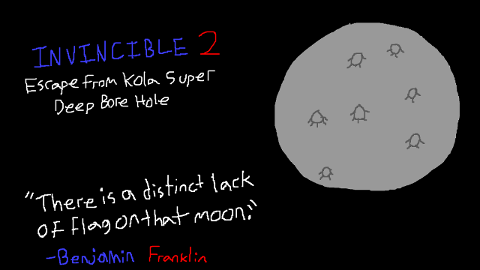 INVINCIBLE 2
Escape from Kola Super
Deep Bore Hole
"There is a distinct lack
of flag on that moon."
-Benjamin Franklin